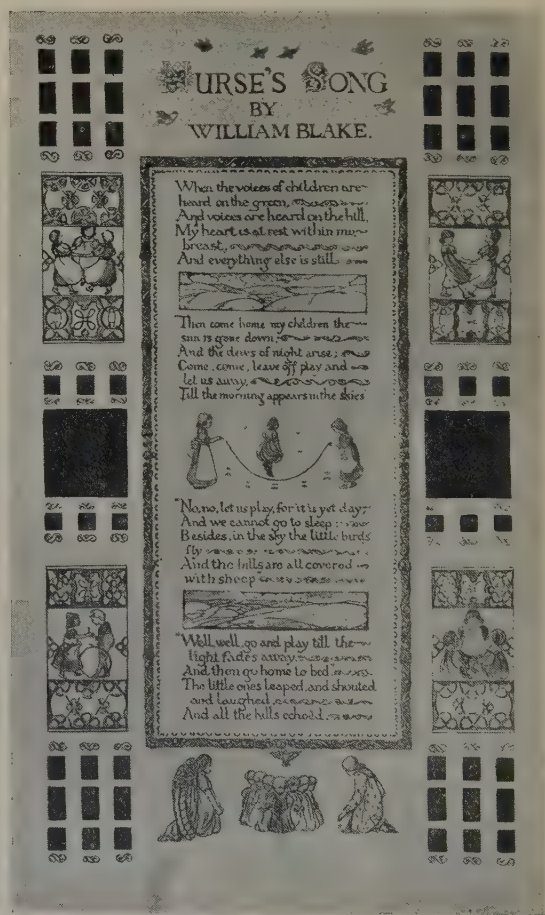 NURSE'S SONG
BY
WILLIAM BLAKE.
When the voices of children are
heard on the green,
And voices are heard on the hill,
My heart is at rest within my
breast,
And everything else is still
Then come home my children the
sun is gone down,
And the dews of night arise;
Come, come, leave off play and
let us away,
Till the morning appears in the skies"
"No, no, let us play, for it is yet day;
And we cannot go to sleep:
Besides, in the sky the little birds
fly
And the hills are all covered
with sheep"
"Well, well, go and play till the
light fades away,
And then go home to bed
The little ones leaped, and shouted
and laughed
And all the hills echoëd.